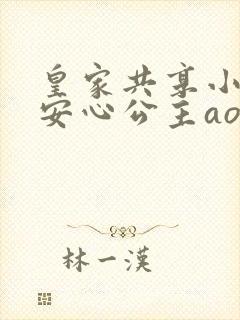 皇家共享小
安心公主ao
林一漢